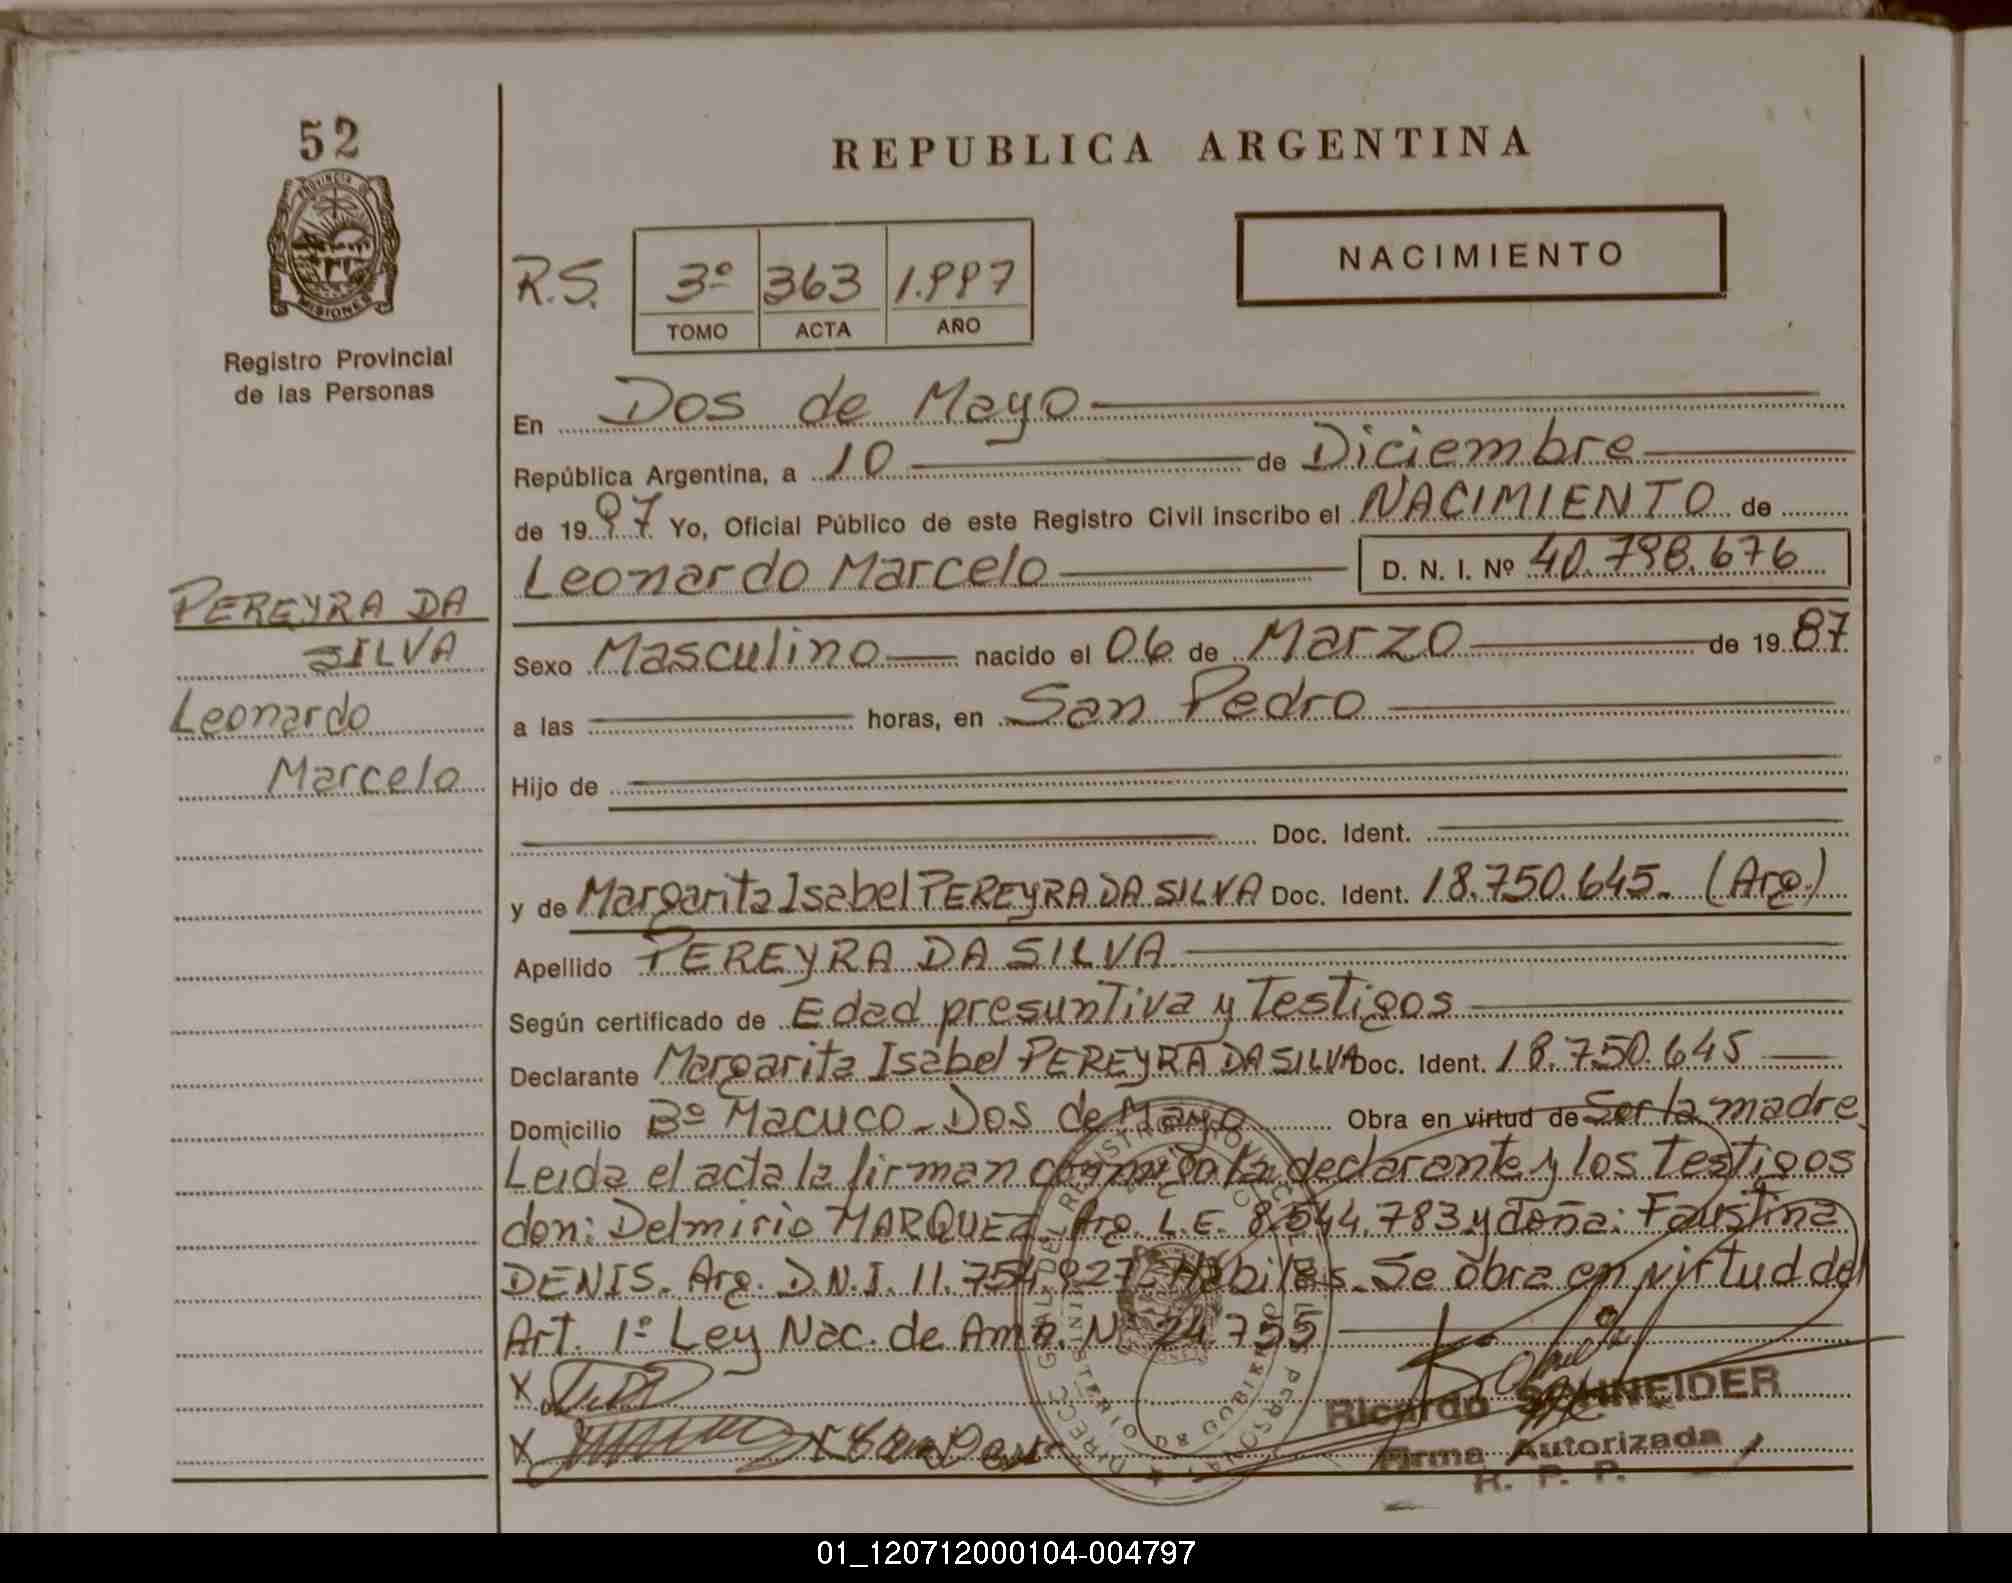 52
PROVINCIA DE
MISIONES
Registro Provincial
de las Personas
PEREYRA DA
SILVA
Leonardo
Marcelo
REPUBLICA ARGENTINA
NACIMIENTO
R.S. 3º 363 1.997
TOMO ACTA AÑO
En Dos de Mayo
República Argentina, a 10 de Diciembre
de 1997 Yo, Oficial Público de este Registro Civil inscribo el NACIMIENTO de
Leonardo Marcelo D. N. I. Nº 40.798.676
Sexo Masculino nacido el 06 de Marzo de 1987
a las horas, en San Pedro
Hijo de
Doc. Ident.
y de Margarita Isabel PEREYRA DA SILVA Doc. Ident. 18.750.645. (Arg.)
Apellido PEREYRA DA SILVA
Según certificado de Edad presuntiva y Testigos
Declarante Margarita Isabel PEREYRA DA SILVA Doc. Ident. 18.750.645
Domicilio Bº Macuco - Dos de Mayo Obra en virtud de Ser la madre.
Leida el acta la firman conmigo la declarante y los Testigos
don: Delmirio MARQUEZ Arg. L.E. 8.544.783 y doña: Faustina
DENIS. Arg. D.N.I. 11.754.927. Hábiles. Se obra en virtud del
Art. 1º Ley Nac. de Amn. Nº 24.755
X
X X
Ricardo SCHNEIDER
Firma Autorizada
R. P. P.
01_120712000104-004797